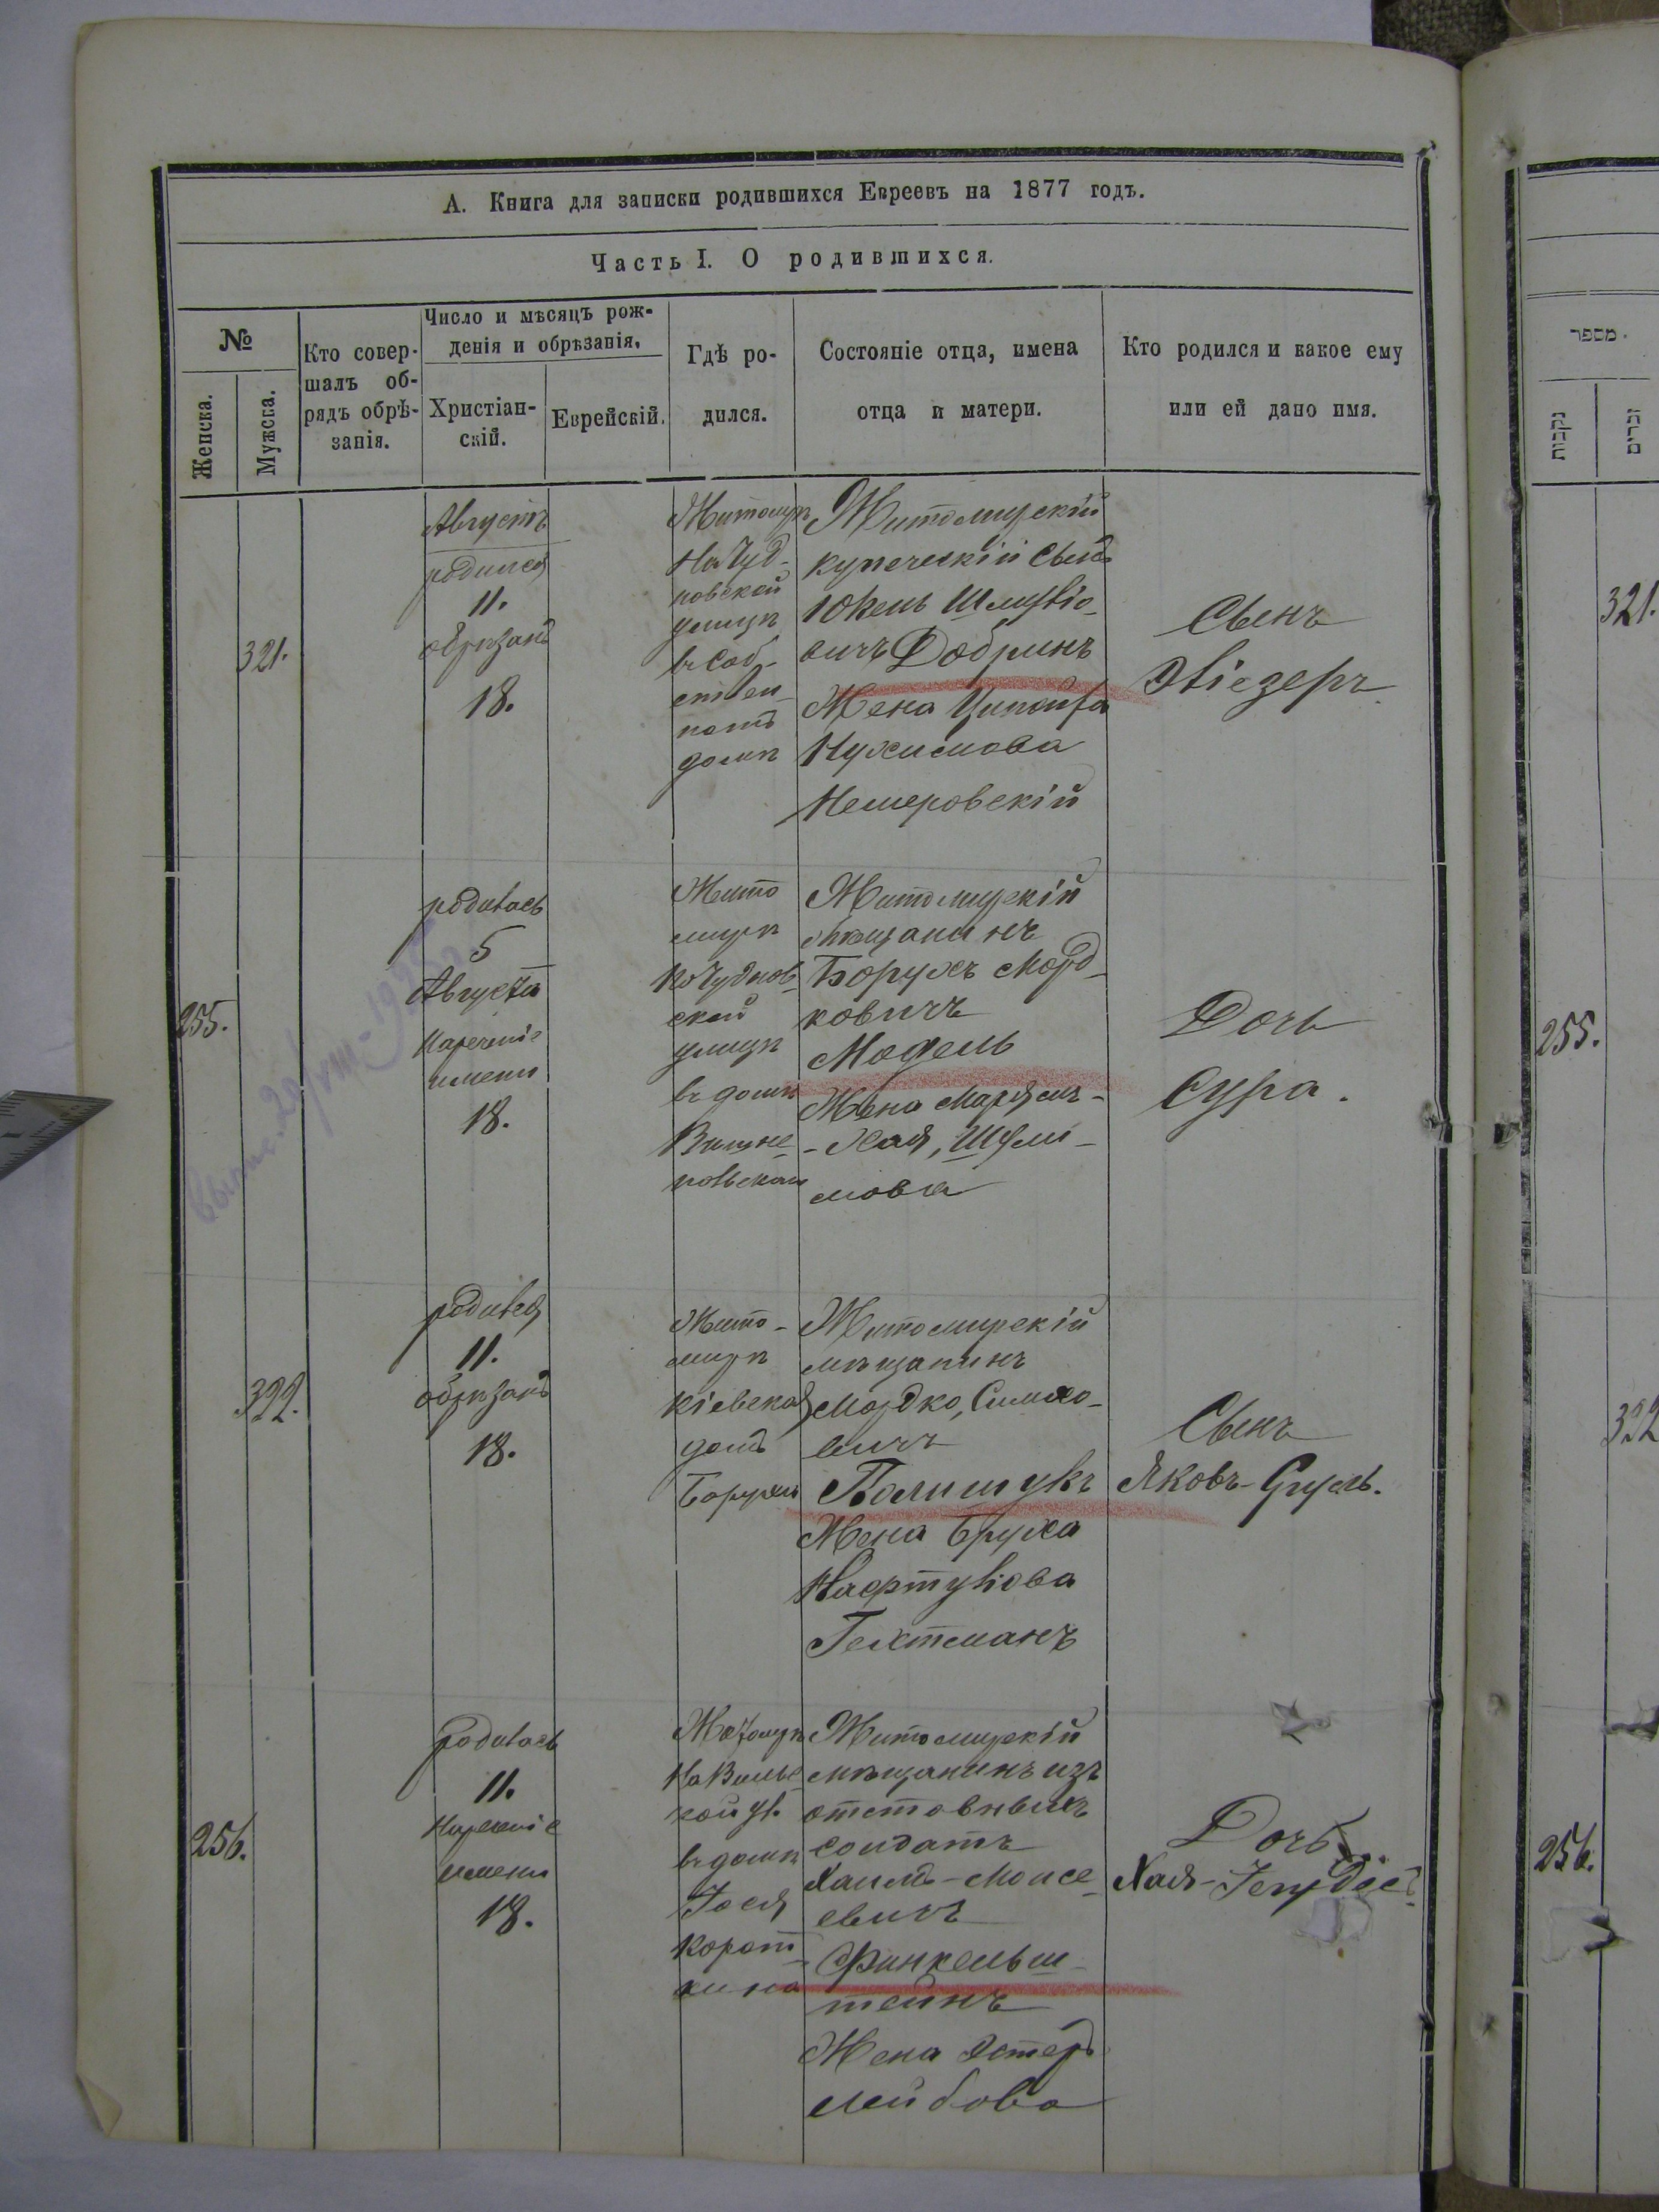 А. Книга для записки родившихся Евреевъ на 1877 годъ.
Часть I. О родившихся.
№
Женска.
Мужска.
Кто совер-
шалъ об-
рядъ обрѣ-
занія.
Число и мѣсяцъ рож-
денія и обрѣзанія.
Христіан-
скій.
Еврейскій.
Гдѣ ро-
дился.
Состояніе отца, имена
отца и матери.
Кто родился и какое ему
или ей дано имя.
321.
Августъ
родился
11.
обрѣзанъ
18.
Житомиръ
На Чуд-
новской
улицѣ
въ соб-
ствен-
номъ
домѣ
Житомирскій
купеческій сынъ
Добринъ
Жена
Нухимова
Немеровскій
Сынъ
255.
родилась
5
Августа
Нареченіе
имени
18.
Жито
мирѣ
По Чуднов-
ской
улицѣ
въ домѣ
Житомирскій
мѣщанинъ
Борухъ Морд-
ковичъ
Модель
Жена Марьямъ-
-Хая,
мова
Дочь
Сура.
322.
родился
11.
обрѣзанъ
18.
Жито-
мирѣ
Кіевская
домъ
Житомирскій
мѣщанинъ
Мордко, Симхо-
вичъ
Полишукъ
Жена Бруха
Нафтулiова
Гехтманъ
Сынъ
Яковъ-Сруль.
256.
родилась
11.
Нареченіе
имени
18.
Житомиръ
кой ул.
въ домѣ
Іося
Корот-
кина
Житомирскій
мѣщанинъ изъ
отставныхъ
солдатъ
Хаимъ-Моисе-
евичъ
Финкельш-
тейнъ
Жена Эстеръ
Лейбова
Дочь
Хая-
מספר
נקבות
זכרים
321.
255.
322
256.